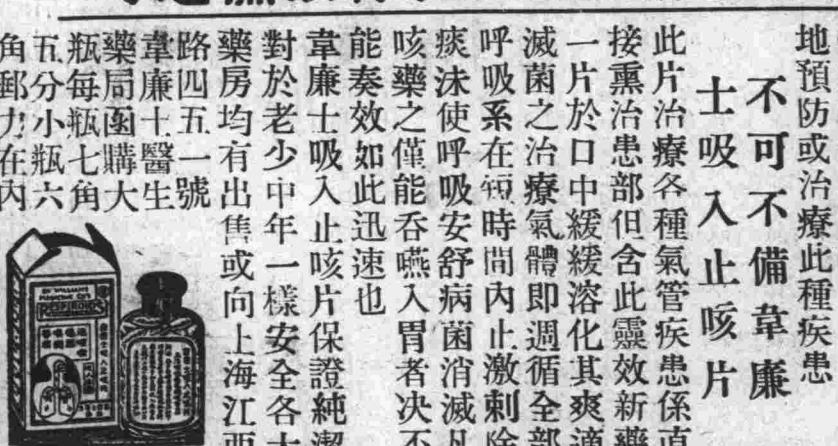 地預防或治療此種疾患
不可不備韋廉
士吸入止咳片
此片治療各種氣管疾患係直
接熏治患部但含此靈效新藥
一片於口中緩緩溶化其爽適
滅菌之治療氣體即週循全部
呼吸系在短時間內止激刺除
痰沬使呼吸安舒病菌消滅凡
咳藥之僅能吞嚥入胃者决不
能奏效如此迅速也
韋廉士吸入止咳片保證純潔
對於老少中年一樣安全各大
藥房均有出售或向上海江西
路四五一號
韋廉士醫生
藥局函購大
瓶每瓶七角
五分小瓶六
角郵力在內
DR. WILLIAMS
MEDICINE CO'S